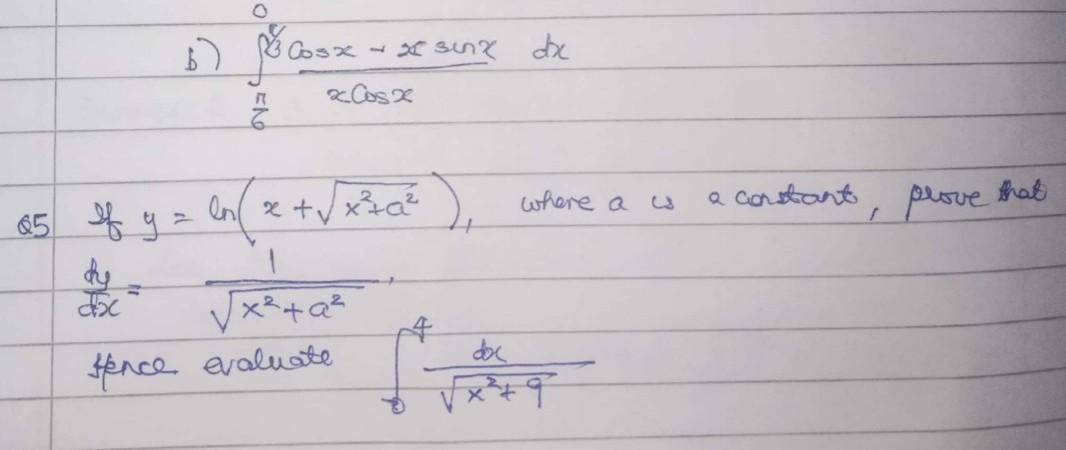 0
b) ∫ from π/6 to π/3 (Cosx - x sinx)/(x Cosx) dx
Q5 If y = ln(x + √(x²+a²)), where a is a constant, prove that
dy/dx = 1/√(x²+a²).
Hence evaluate ∫ from 0 to 4 dx/√(x²+9)